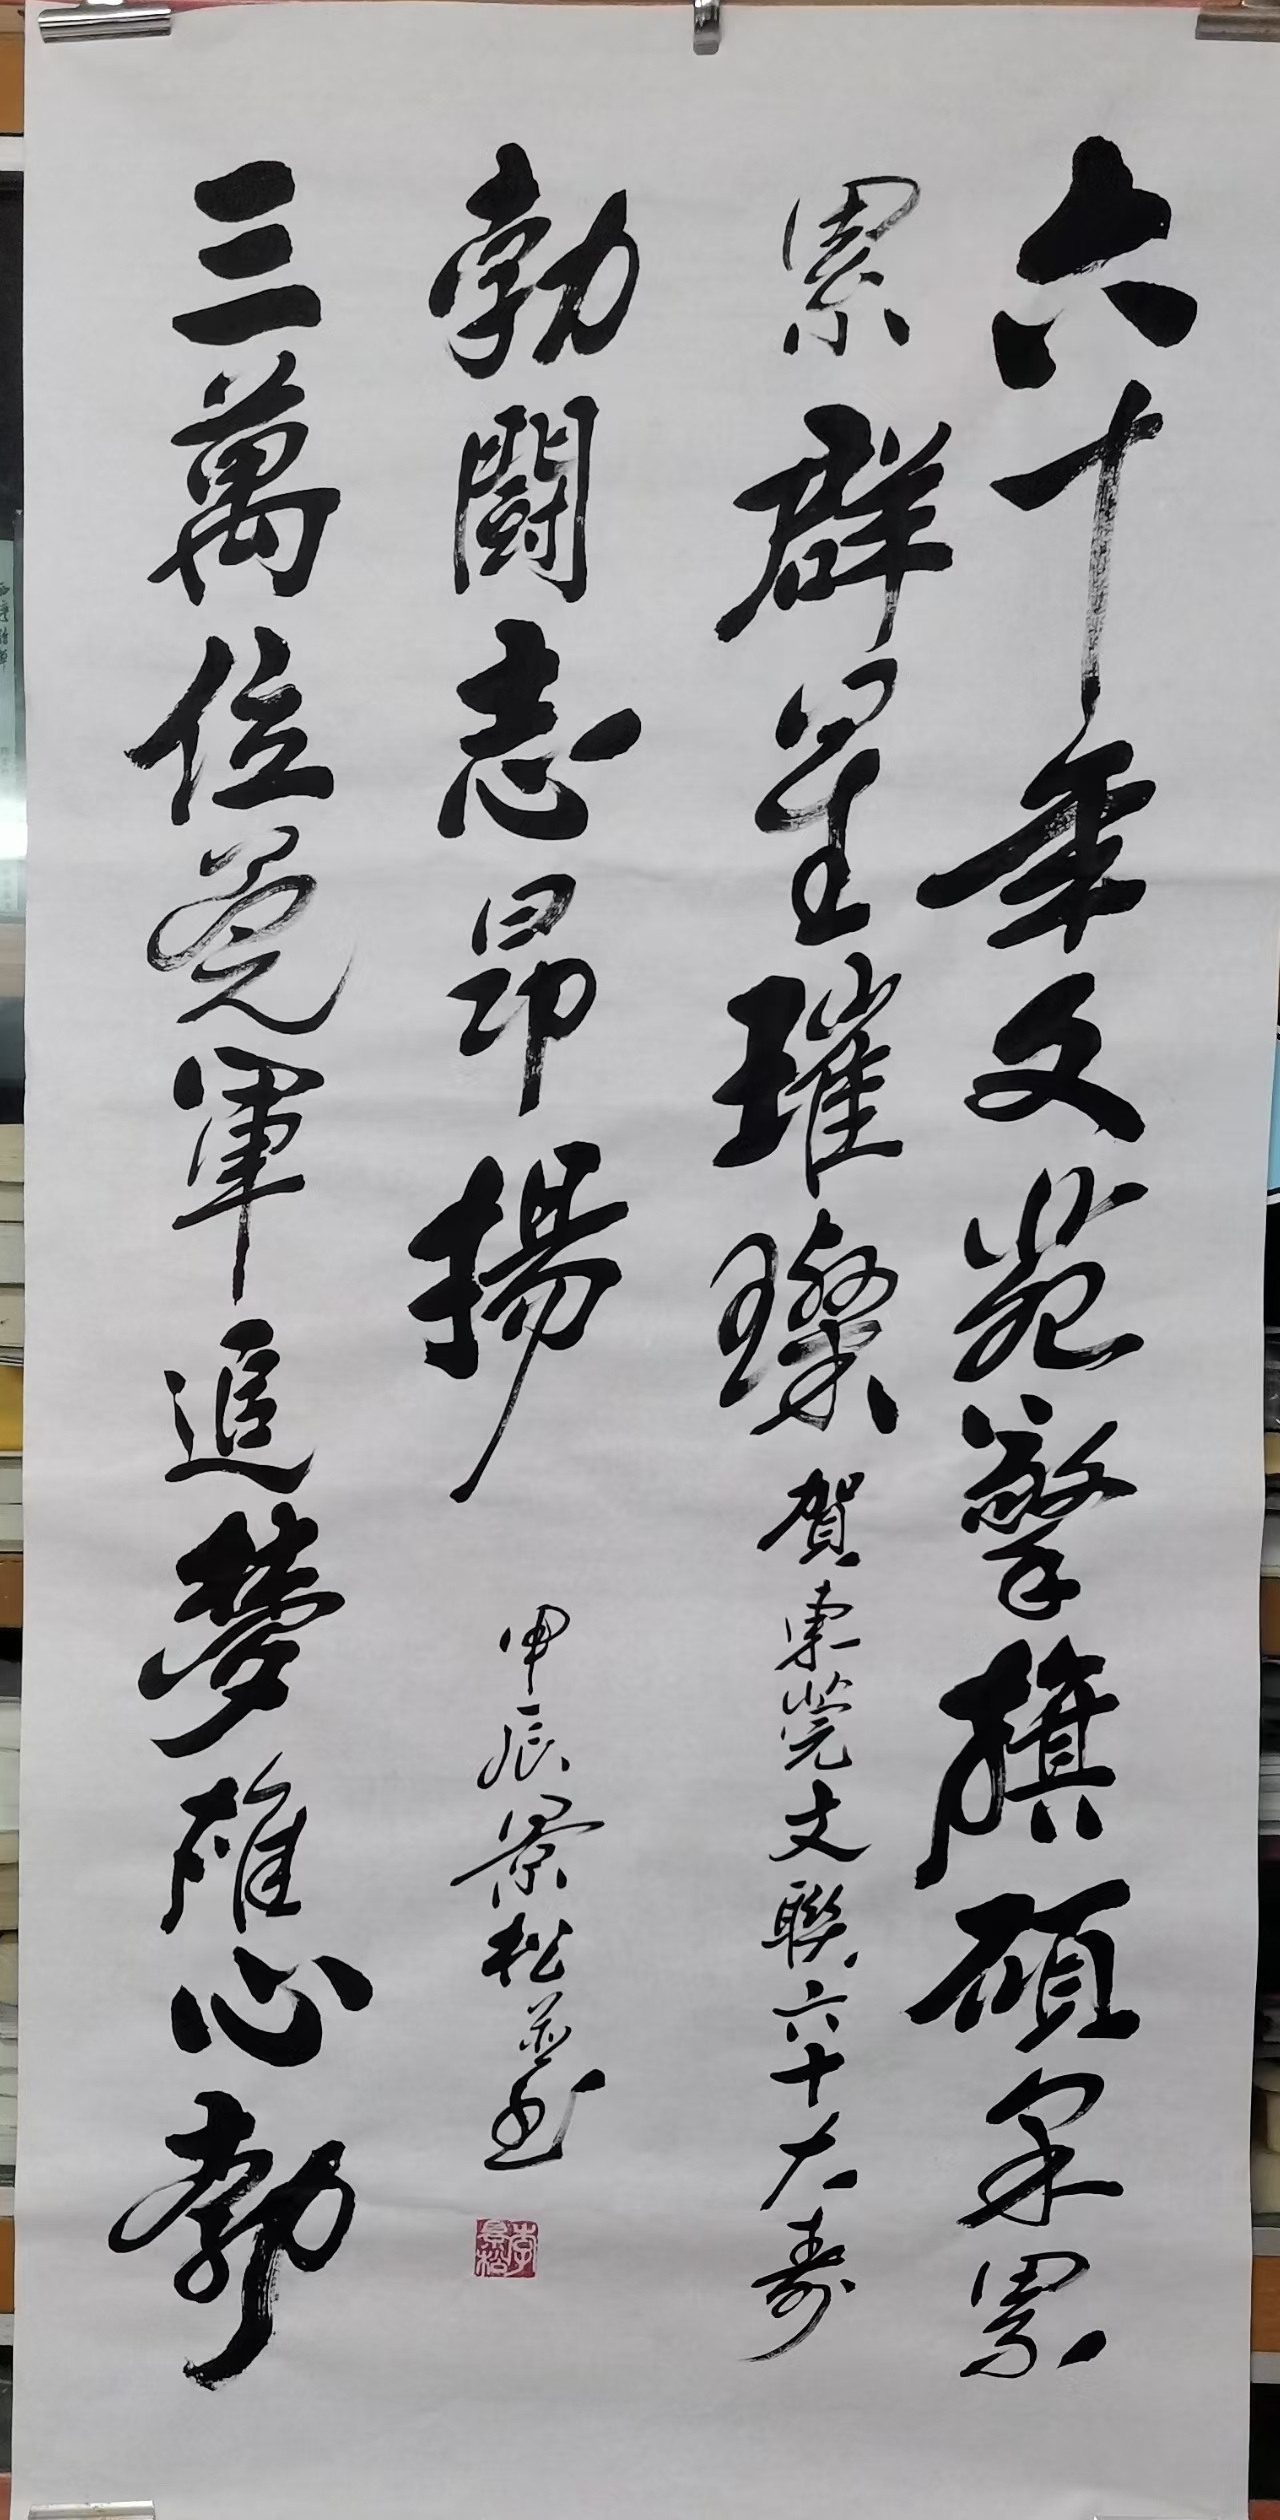 六十年文苑擎旗碩果累
累群星璀璨
賀東莞文聯六十大壽
三萬位莞軍追夢雄心勃
勃闘志昂揚
甲辰景松並書
李景松